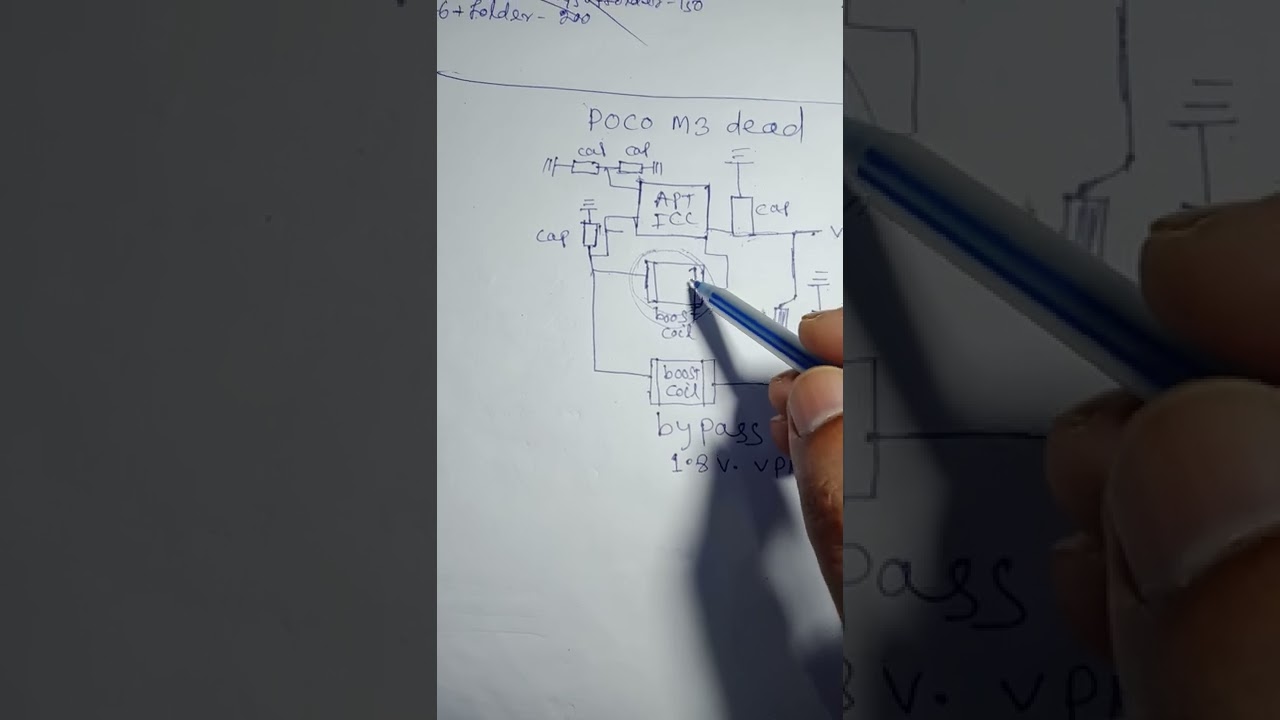 6+folder- 200
POCO M3 dead
cap cap
APT
ICC
cap
cap
V
boost
coil
boost
coil
bypass
1.8 V. VP
pass
8 V. VP